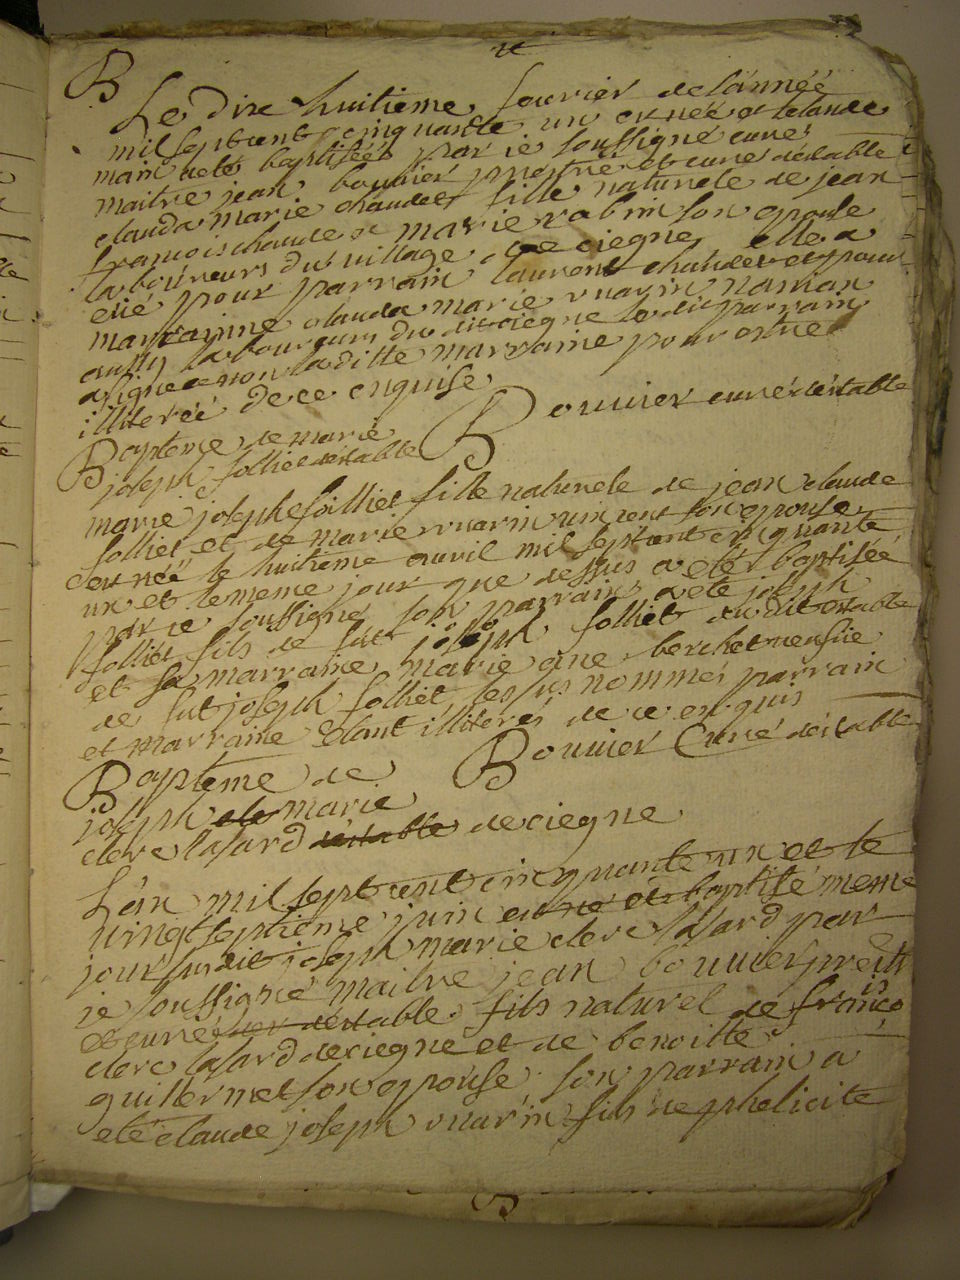 B
Le dix huitieme fevrier de lánnéé
mil sept cent cinquante un et néé et le lande
main a eté baptiséé par ie soussigné curé
maitre jean bouvier pretre et curé déstable
clauda marie chaudet fille naturele de jean
francois chaudet et marie rabin son epouse
laboureurs du village de ciegne elle a
eté pour parrain laurent chaudet et pour
marrainne clauda marie vuarin
aussy laboureurs du dit ciegne le dit parrain
a signé et non la ditte marraine pour etre
illiteréé de ce enquise
Bouvier curé déstable
Bapteme de marie
joseph folliet déstable
marie josephe folliet fille naturele de jean claude
folliet et de marie vuarin vincent son epouse
est néé le huitieme avril mil sept cent cinquante
un et le meme jour que dessus a eté baptiséé
par ie soussigné son parrain a eté joseph
folliet fils de fut joseph folliet du dit estable
et sa marraine marie ane berchet
de fut joseph folliet les sus nommés parrain
et marraine etant illiterés de ce enquis
Bouvier Curé déstable
Bapteme de
joseph marie
clerc lasard de ciegne
Lán mil sept cent cinquante un et le
vingt septieme juin est né et baptisé meme
jour susdit joseph marie clerc lasard par
ie soussigné maitre jean bouvier pretre
et curé déstable fils naturel de francois
clerc lasard de ciegne et de benoitte
guillermet son epouse son parrain a
eté claude joseph vuarin fils de phelicité